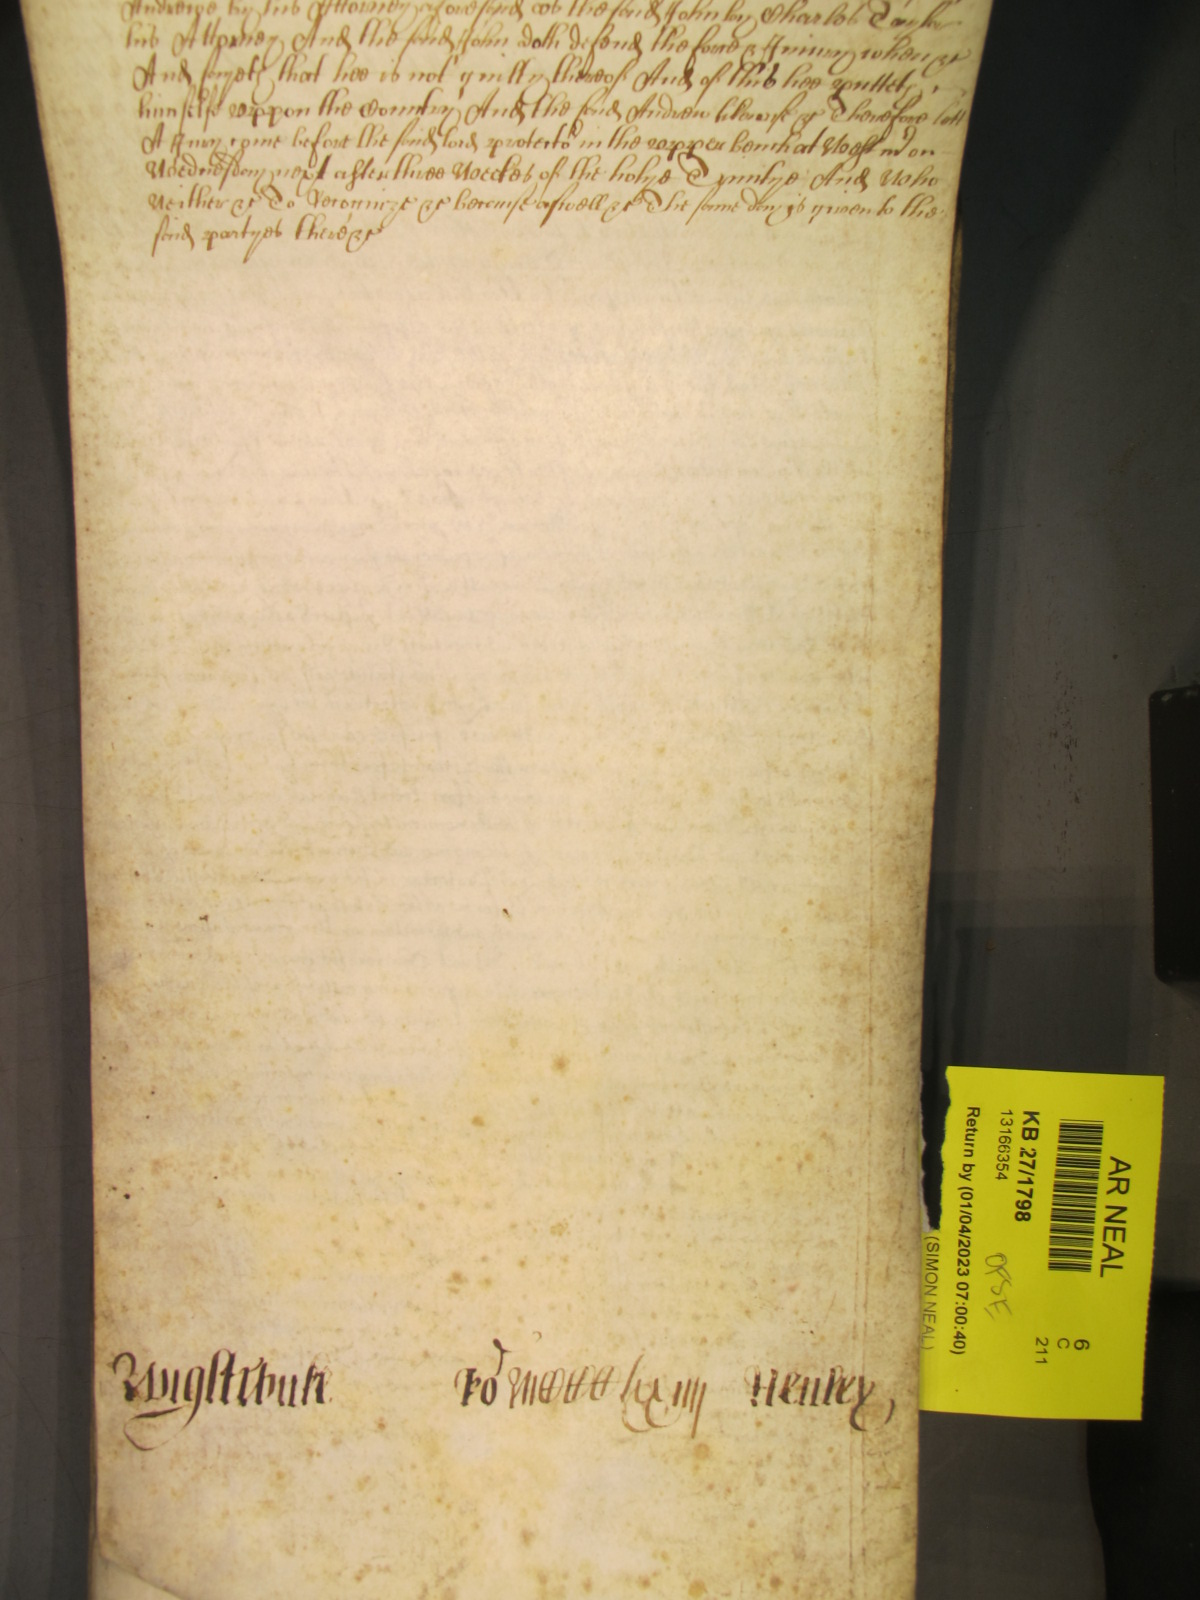 Andrewe by his Attorney aforesaid as the said John by Charles Taylor
his Attorney And the said John doth defend the force & Iniury when &c
And sayeth that hee is not guilty thereof And of this hee puttet
himselfe uppon the Country And the said Andrew likewise &c Therefore lett
A Iury come before the said lord protector in the upper bench at Westmr on
Wednesday next after three Weekes of the holye Trinitye And Who
Neither &c To Recognize &c because aswell &c The same day is given to the
said partyes there &c
Wightwick
Ro MCCCC lxxiiij
Henley
AR NEAL
KB 27/1798
13166354
Return by (01/04/2023 07:00:40)
(SIMON NEAL)
6
C
211